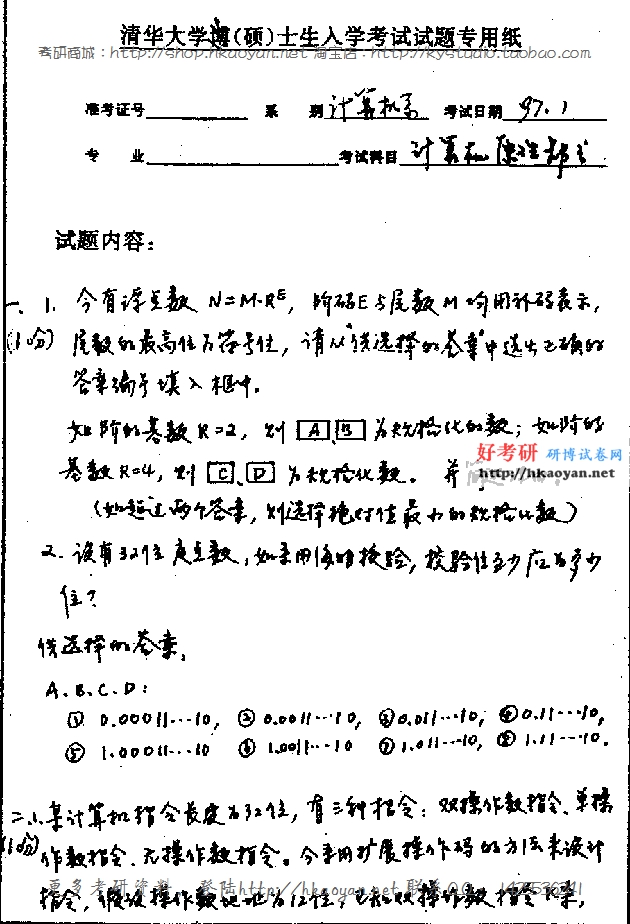 清华大学博(硕)士生入学考试试题专用纸
考研商城:http://shop.hkaoyan.net 淘宝店:http://kystudio.taobao.com
准考证号 系 别 计算机系 考试日期 97.1
专 业 考试科目 计算机原理部分
试题内容:
一、1. 今有浮点数 N=M·R^E, 阶码E与尾数M均用补码表示,
尾数的最高位为符号位, 请从"供选择的答案"中选出正确的
答案编号填入框中。
如阶的基数R=2, 则 A、B 为规格化的数; 如阶的
基数R=4, 则 C、D 为规格化数。 并
好考研 研博试卷网
http://hkaoyan.net
(如超过两个答案, 则选择绝对值最小的规格化数)
2. 设有32位定点数, 如采用海明校验, 校验位至少应为多少
位?
供选择的答案:
A.B.C.D:
① 0.00011…10, ② 0.0011…10, ③ 0.011…10, ④ 0.11…10,
⑤ 1.00011…10 ⑥ 1.0011…10 ⑦ 1.011…10 ⑧ 1.11…10.
二、某计算机指令长度为32位, 有三种指令: 双操作数指令、单操
作数指令、无操作数指令。今采用扩展操作码的方法来设计
指令, 假设操作数地址为12位, 已知双操作数指令
更多考研资料 登陆http://hkaoyan.net 联系QQ